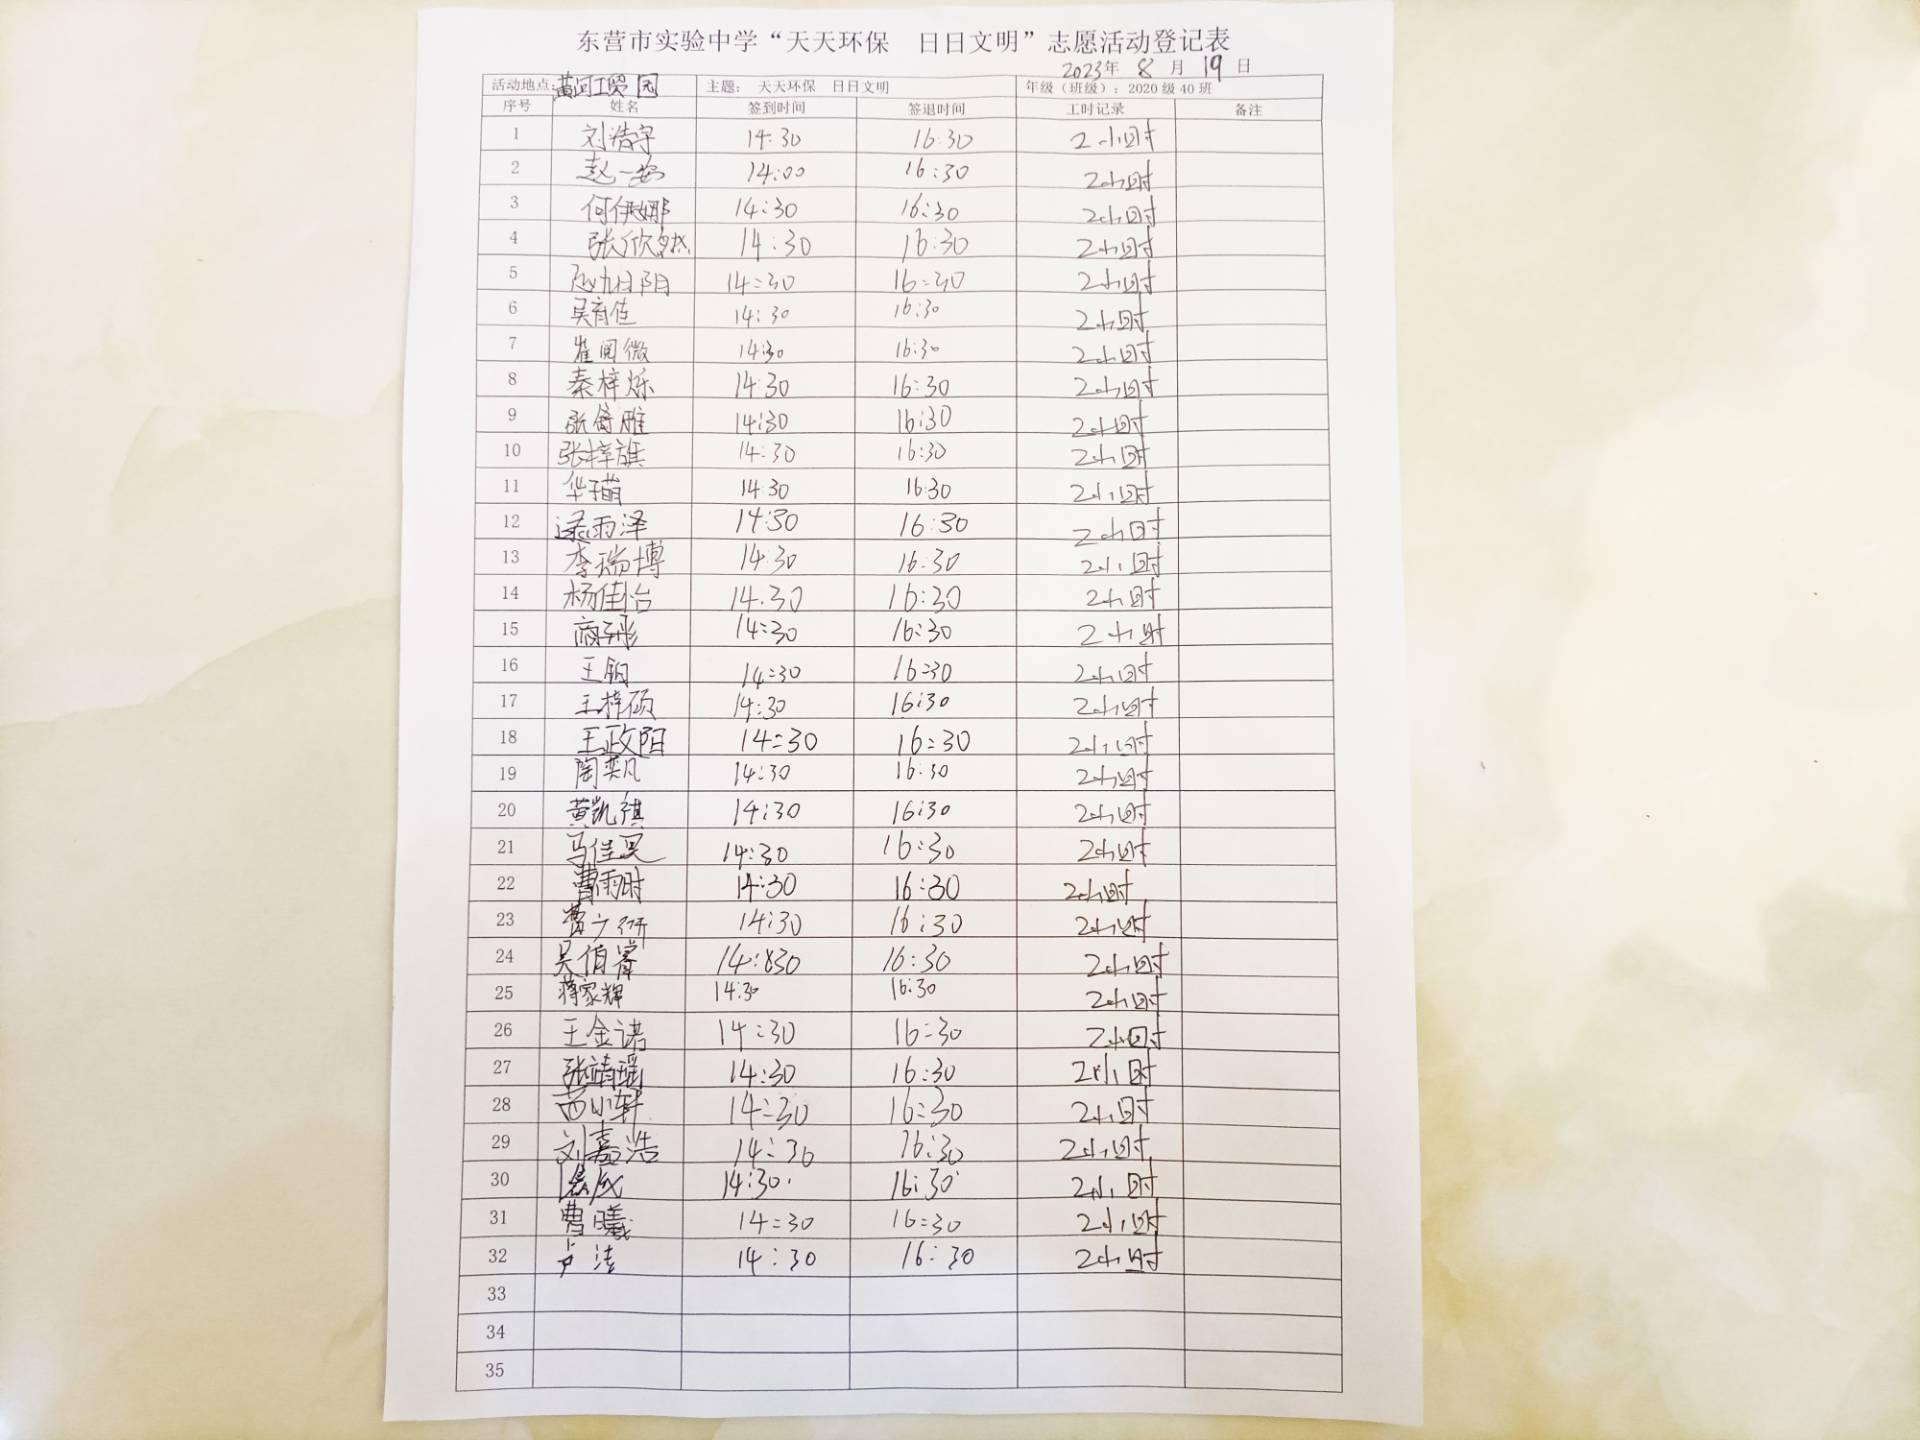 东营市实验中学“天天环保 日日文明”志愿活动登记表
2023年 8 月 19 日
活动地点:黄河工贸园 主题: 天天环保 日日文明 年级（班级）: 2020级40班
序号 姓名 签到时间 签退时间 工时记录 备注
1 刘浩宇 14:30 16:30 2小时
2 赵一安 14:00 16:30 2小时
3 何伊娜 14:30 16:30 2小时
4 张欣然 14:30 16:30 2小时
5 赵旭阳 14:30 16:30 2小时
6 吴育佳 14:30 16:30 2小时
7 崔阅微 14:30 16:30 2小时
8 秦梓烁 14:30 16:30 2小时
9 张倚雅 14:30 16:30 2小时
10 张梓旗 14:30 16:30 2小时
11 华子萌 14:30 16:30 2小时
12 逯雨泽 14:30 16:30 2小时
13 李瑞博 14:30 16:30 2小时
14 杨佳怡 14:30 16:30 2小时
15 商子彤 14:30 16:30 2小时
16 王钧 14:30 16:30 2小时
17 王梓硕 14:30 16:30 2小时
18 王政阳 14:30 16:30 2小时
19 陶奕凡 14:30 16:30 2小时
20 黄凯祺 14:30 16:30 2小时
21 马佳 14:30 16:30 2小时
22 曹雨时 14:30 16:30 2小时
23 14:30 16:30 2小时
24 吴伯睿 14:30 16:30 2小时
25 蒋家辉 14:30 16:30 2小时
26 王金诺 14:30 16:30 2小时
27 张靖瑶 14:30 16:30 2小时
28 苟小轩 14:30 16:30 2小时
29 刘嘉浩 14:30 16:30 2小时
30 14:30 16:30 2小时
31 曹曦 14:30 16:30 2小时
32 卢洁 14:30 16:30 2小时
33
34
35